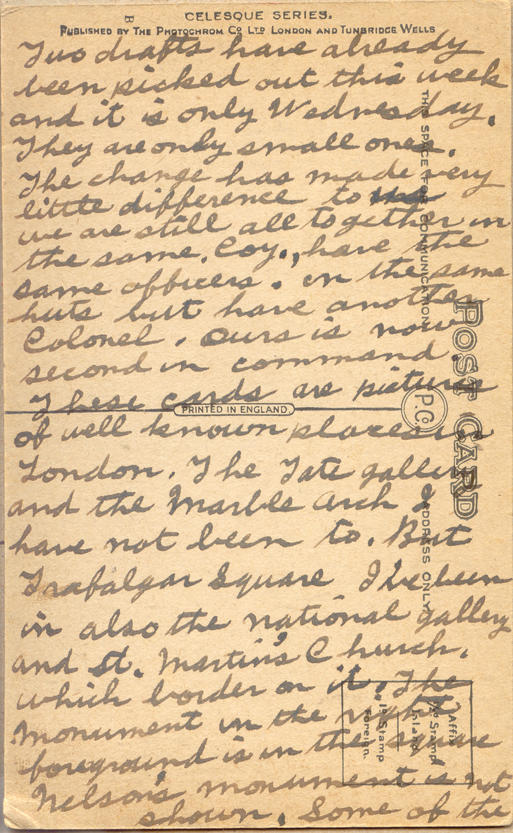 CELESQUE SERIES.
B
PUBLISHED BY THE PHOTOCHROM CO LTD LONDON AND TUNBRIDGE WELLS
Two drafts have already
been picked out this week
and it is only Wednesday.
They are only small ones.
The change has made very
little difference to us
we are still all together in
the same. Coy., have the
same officers. in the same
huts but have another
Colonel. Ours is now
second in command.
These cards are picture
PRINTED IN ENGLAND.
of well known places in
London. The Tate gallery
and the Marble Arch I
have not been to. But
Trafalgar Square I've been
in also the national gallery
and St. Martin's Church.
which border on it. The
monument in the right
foreground is in the square
Nelson's monument is not
shown. Some of the
POST CARD
P.C.
THIS SPACE FOR COMMUNICATION
ADDRESS ONLY
Affix
½d Stamp
Inland
1d Stamp
Foreign.